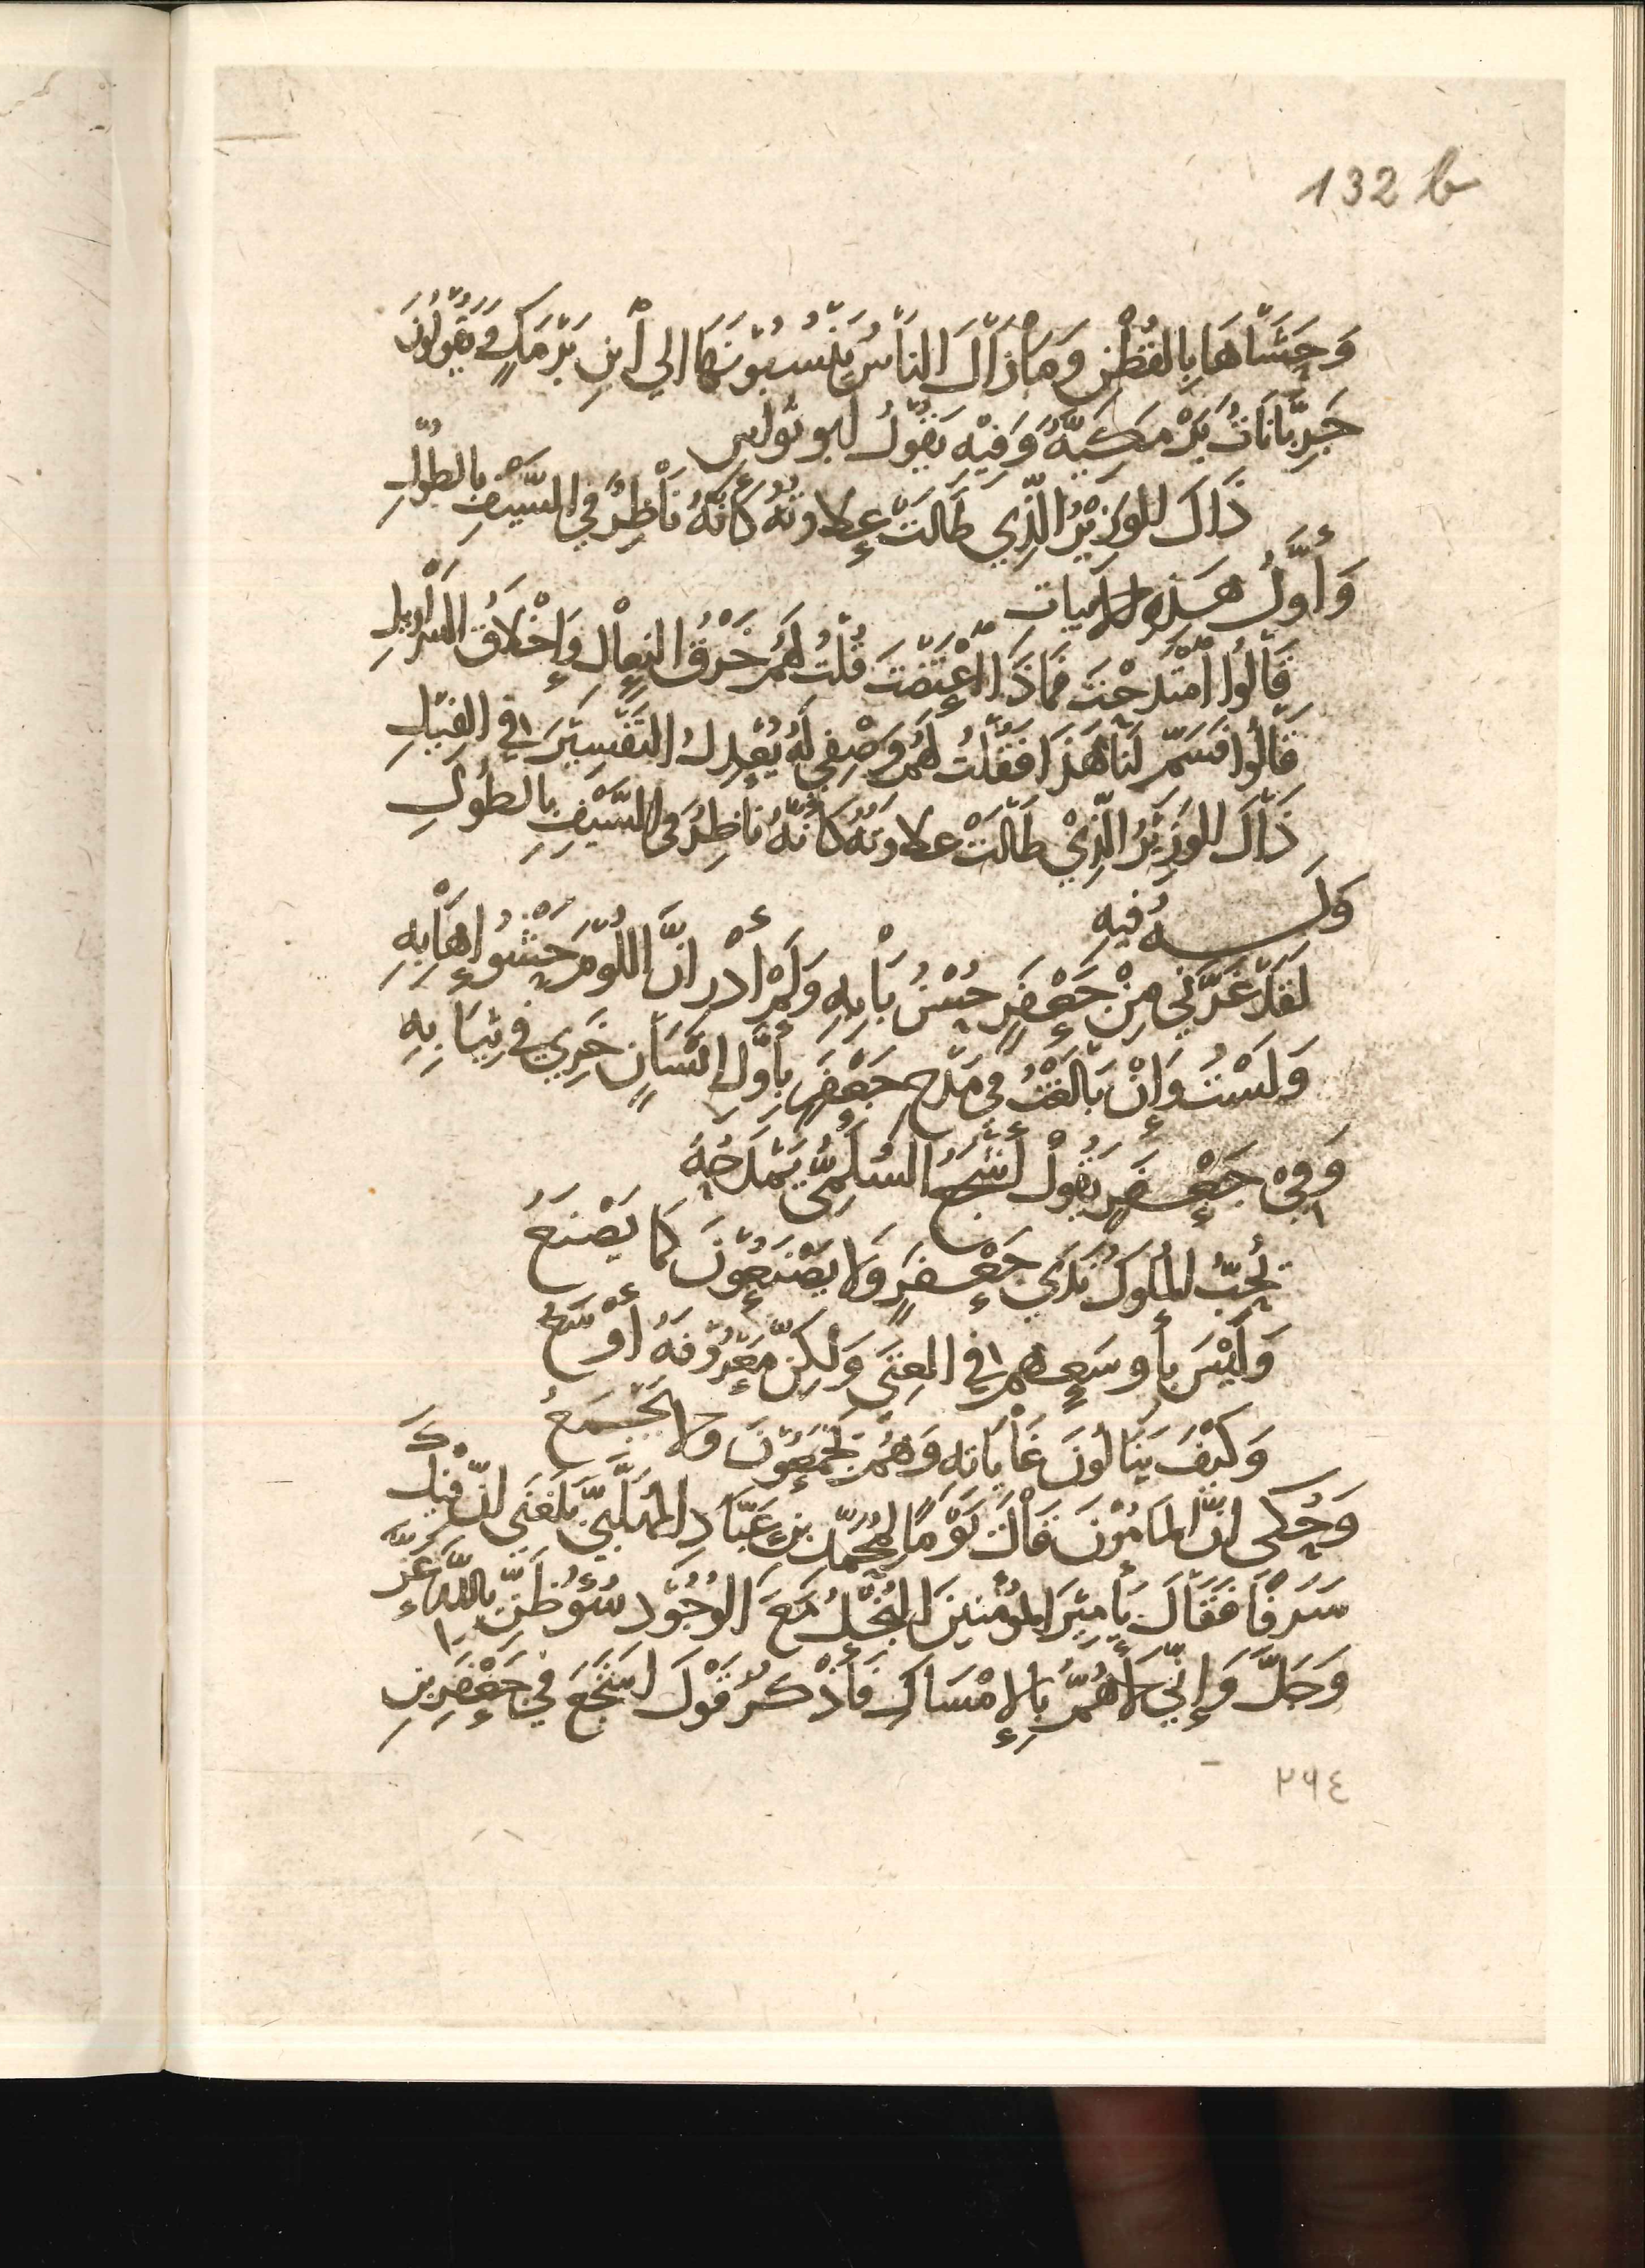 132 b
وَحَشَاهَا بِالقُطْنِ وَمَا زَالَ النَاسُ يَنْسُبُوْنَهَا الي أبْنِ بَرْمَكٍ فَيَقُوْلُوْنَ
جَرِبَّانَاتُ بَرْمَكِيَّةُ وَفِيْهِ يَقُوْلُ ابو نواس
ذَاكَ الوَزِيْرُ الَّذِي طَالَتْ عِلاوتُهُ كَأنَّهُ نَاظِرٌ فِي السَّيْفِ بالطُوْلِ
وَأوَّلُ هَذِهِ الابيات
قَالُوا أمْتَدَحْتَ فَمَاذَا اعْتَضْتَ قُلْتُ لَهُمْ خَرْقُ النِعَالِ وَإخْلاقُ السَرَاوِيلِ
قَالُوا فَسَمِّ لَنَا هَذَا فَقُلْتُ لَهُمْ وَصْفِي لَهُ يُعْدِلُ التَفْسِيْرَ فِي القِيْلِ
ذَاكَ الوَزِيْرُ الَّذِيْ طَالَتْ علاوتهُ كَأنَّهُ نَاظِرٌ فِي السَّيْفِ بالطُولِ
وَلَهُ فِيهِ
لَقَدْ غَرَّنِي مِنْ جَعْفَرٍ حُسْنُ بَابِهِ وَلَمْ أدْرِ انَّ اللُوْمَ حَشْوُ إهَابِهِ
وَلَسْتُ وَإنْ بَالَغْتُ فِي مَدْحِ جَعْفَرٍ بِأوَّلِ إنْسَانٍ خَرِي فِي ثِيَابِهِ
وَفِيْ جَعْفَرٍ يَقُوْلُ أشْجَعُ السُلَمِيُّ يَمْدَحُهُ
يُحِبُّ المُلوكُ نَدَي جَعْفَرٍ وَلا يَصْنَعُوْنَ كَمَا يَصْنَعُ
وَلَيْسَ بأوسَعِهِم فِي الغِنَى وَلَكِنَّ مَعْرُوْفَهُ أوْسَعُ
وَكَيْفَ يَنَالُونَ غَايَاتِهِ وَهُمْ يَجْمَعُوْنَ وَلا يَجْمَعُ
وَحُكى انَّ المَامُوْنَ قَالَ يَوْمًا لِمُحَمَّدِ بنِ عَبَّادِ المُهَلَّبِيِّ بَلَغَنِي انَّ فِيْكَ
سَرَفًا فَقَالَ يَا أمِيْرَ المُؤْمِنِينَ البُخْلُ مَعَ الوُجُوْدِ سُوْءُ ظَنٍّ بِاللَّهِ عَزَّ
وَجَلَّ وَإنِّي لأهُمُّ بِالإمْسَاكِ فَأذْكُرُ قَوْلَ اشْجَعَ فِي جَعْفَرِ بنِ
٢٦٤